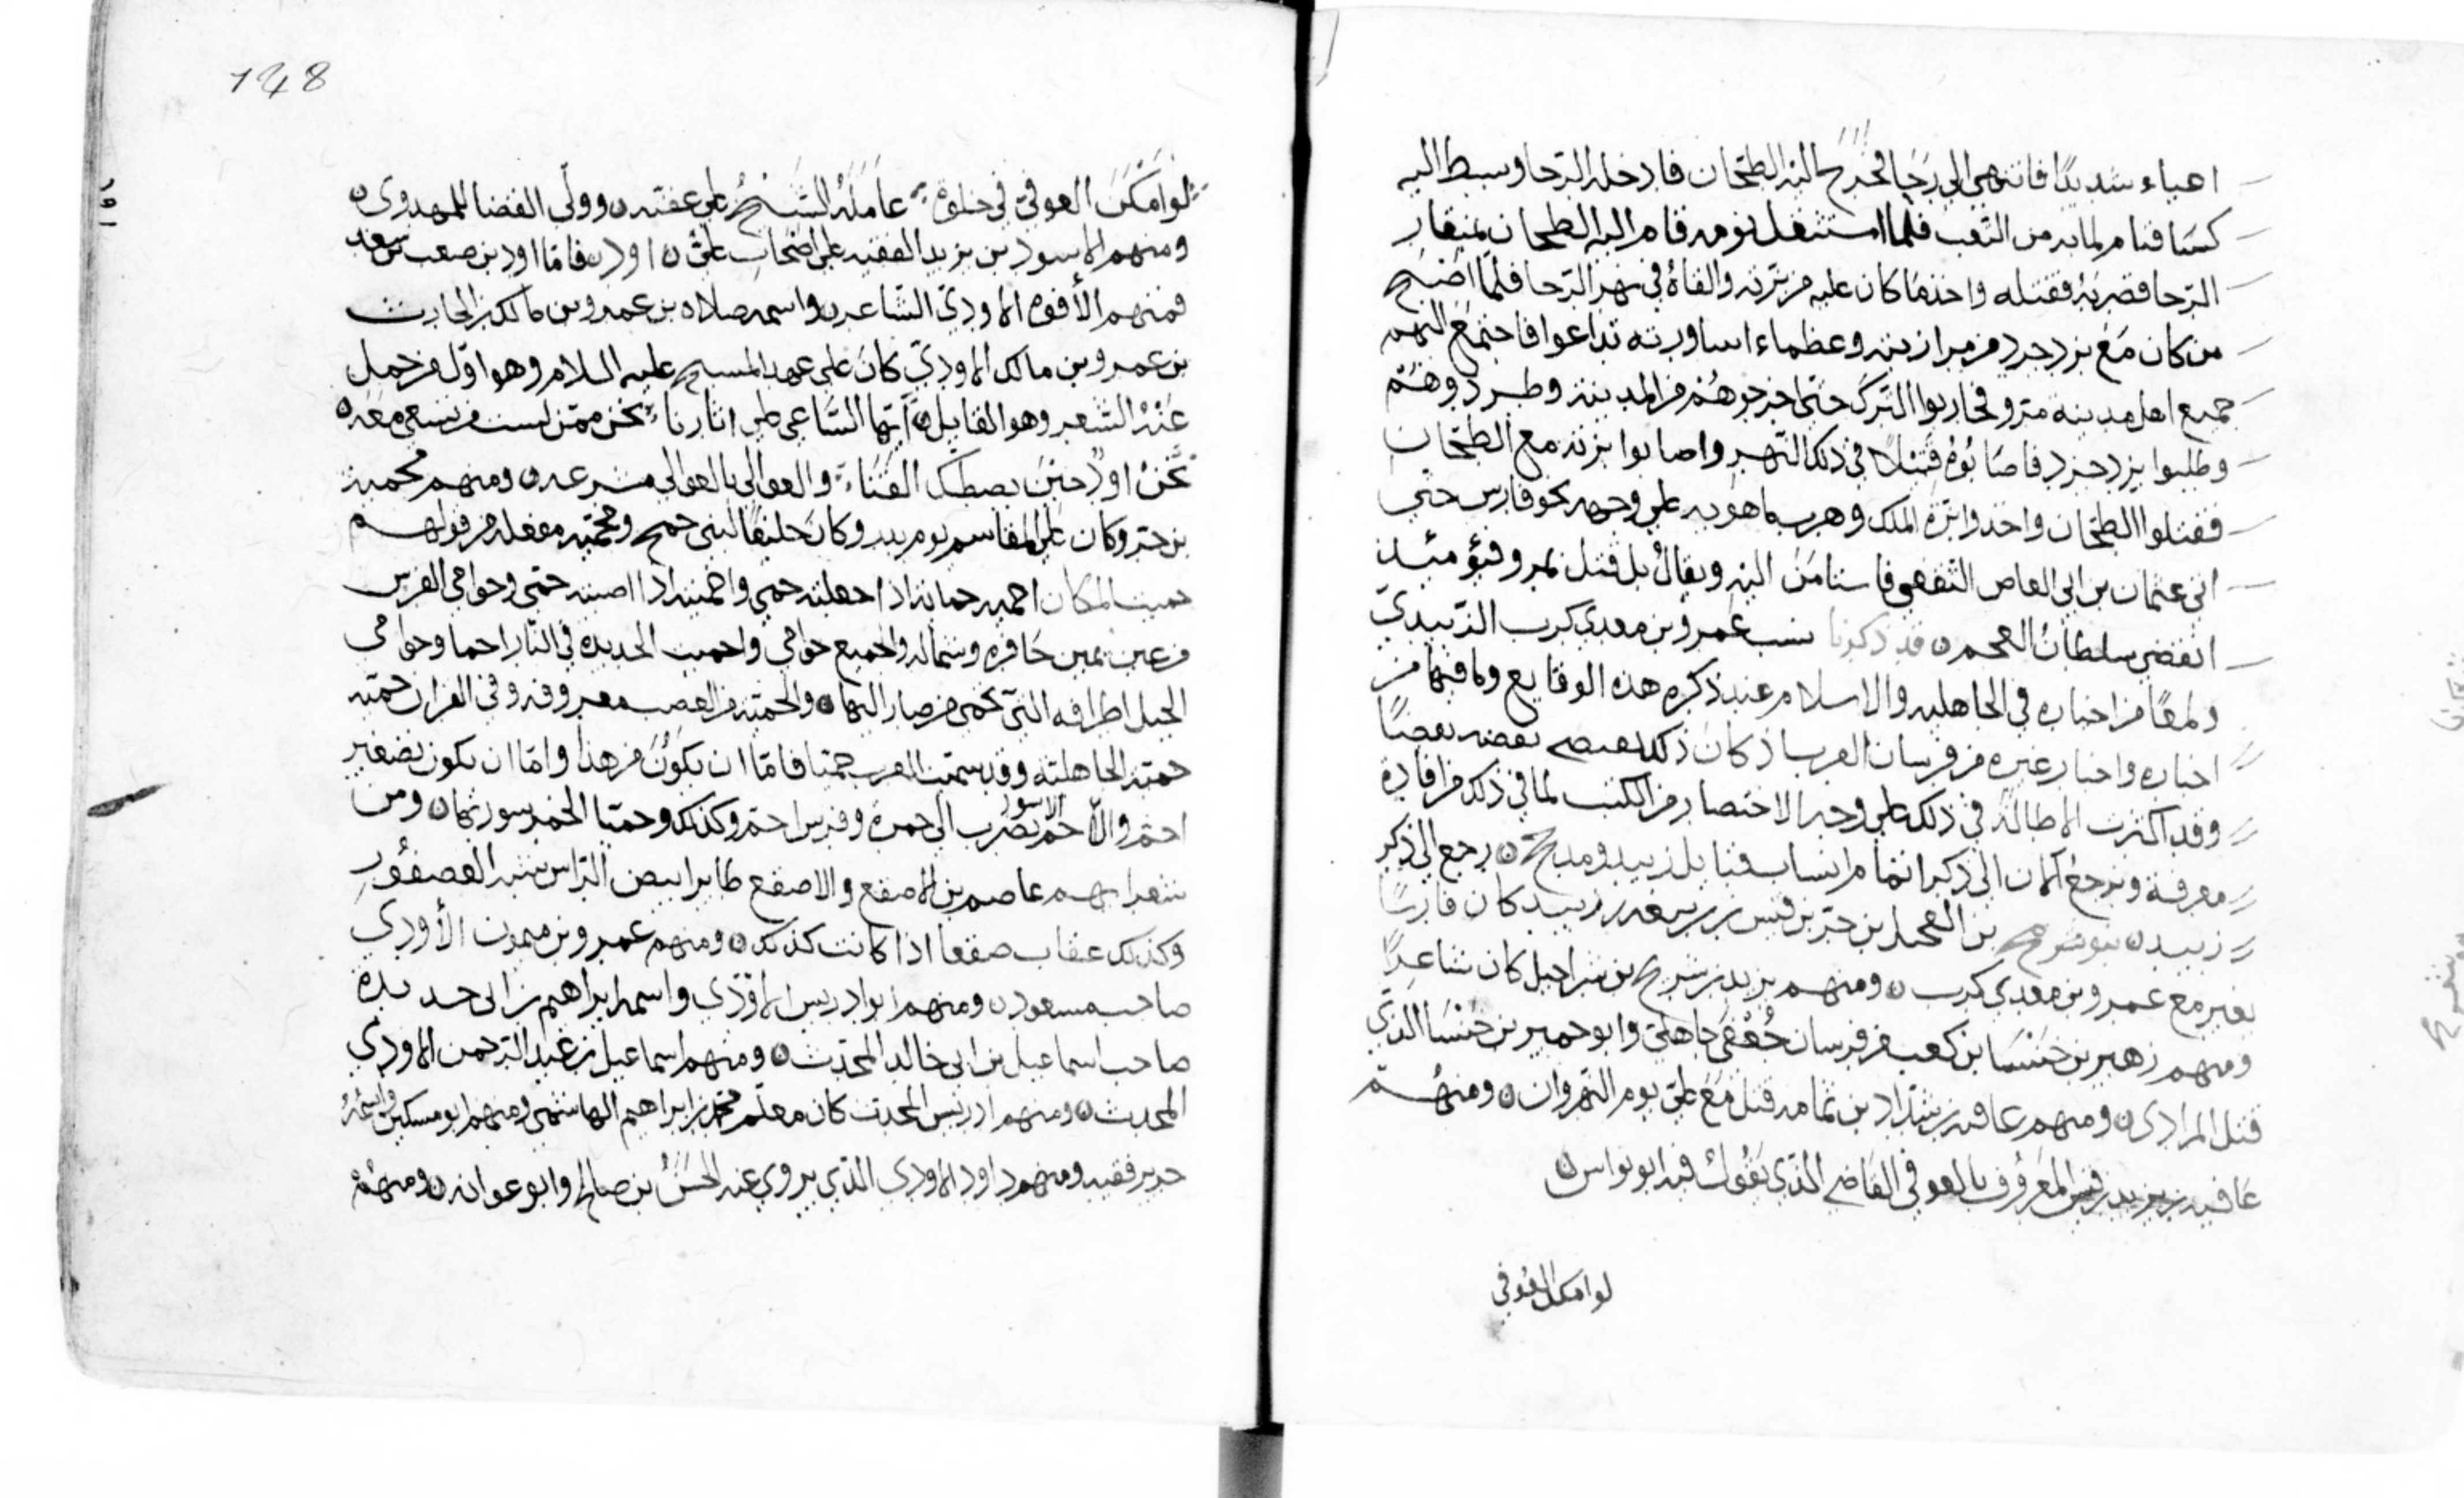 اعياء شديدًا فانتهى الى رحا فخرج اليه الطحان فادخله الرحا وبسط اليه
كسا فنام لما به من التعب فلما استثقل نومه قام اليه الطحان بمنقار
الرحا فضربه فقتله واخذ ما كان عليه من بزته والقاه في نهر الرحا فلما اصبح
من كان مع يزدجرد من مرازبته وعظماء اساورته تداعوا فاجتمع اليهم
جميع اهل مدينة مرو فحاربوا الترك حتى اخرجوهم من المدينة وطردوهم
وطلبوا يزدجرد فاصابوه قتيلا في ذلك النهر واصابوا بزته مع الطحان
فقتلوا الطحان واخذوا بزة الملك وهرب ماهويه على وجهه نحو فارس حتى
اتى عثمان بن ابي العاص الثقفي فاستامن اليه ويقال بل قتل بمرو فيؤمئذ
انقضى سلطان العجم ٥ قد ذكرنا نسب عمرو بن معدي كرب الزبيدي
ولمعًا من اخباره في الجاهليه والاسلام عند ذكره هذه الوقايع وما فيها من
اخباره واخبار غيره من فرسان العرب اذ كان ذكر بعضه بعضًا
وقد اكثرت الاطالة في ذلك على وجه الاختصار من الكتب لما في ذلك من افادة
معرفة ونرجع الان الى ذكر اتمام انساب قبايل زبيد ومدحج ٥ رجع الى ذكر
زبيد ٥ بن العجيل بن حبر بن قيس بن زبيد كان فارسًا
يغير مع عمرو بن معدي كرب ٥ ومنهم يزيد بن شريح بن شراحيل كان شاعرًا
ومنهم زهير بن خنسا بن كعب من فرسان جعفي جاهلي وابو حمير بن خنسا الذي
قتل المرادي ٥ ومنهم عافيه بن شداد بن ثمامه قتل مع علي يوم النهروان ٥ ومنهم
عافيه بن يزيد بن قيس المعروف بالعوفي القاضي الذي يقول فيه ابو نواس ٥
لوامكن العوفي
148
لوامكن العوفي في خلوة عامله الشيخ على عفته ٥ وولي القضا للمهدي ٥
ومنهم الاسود بن يزيد الفقيه على اصحاب علي ٥ اود ٥ فاما اود بن صعب بن سعد
فمنهم الأفوه الاودي الشاعر ٥ واسمه صلاه بن عمرو بن مالك بن الحارث
بن عمرو بن مالك الاودي كان على عهد المسيح عليه السلام وهو اول من حمل
عنه الشعر وهو القايل ٥ ايها الساعي على اثارنا نحن ممن لست من تسعى معه ٥
نحن اود حين يصطك القنا والعوالي بالعوالي مشرعه ٥ ومنهم محميه
بن جزو كان على المقاسم يوم بدر وكان حليفًا لبني جمح ومحميه مفعله من قولهم
حميت المكان احميه حمايه اذا جعلته حمى واحميته اذا اصبته حمى وحوامي الفرس
من عن يمين حافره وشماله والجميع حوامي واحميت الحديده في النار احما وحوامي
الجبل اطرافه التي تحمى من صار اليها ٥ والحميه من الغضب معروفه وفي القران حميه
حميه الجاهليه وقد سمت العرب حميا فاما ان يكون من هذا واما ان يكون تصغير
احم والاحم الاسود يضرب الى حمرة وفرس احم وكذلك وحميا الخمر سورتها ٥ ومن
شعرايهم عاصم بن الاصقع والاصقع طاير ابيض الراس شبه العصفور
وكذلك عقاب صقعا اذا كانت كذلك ٥ ومنهم عمرو بن ميمون الأودي
صاحب مسعود ٥ ومنهم ابو ادريس الاودي واسمه ابراهيم بن ابي حديده
صاحب اسماعيل بن ابي خالد المحدث ٥ ومنهم اسماعيل بن عبد الرحمن الاودي
المحدث ٥ ومنهم ادريس المحدث كان معلم محمد بن ابراهيم الهاشمي ومنهم ابو مسكين واسمه
حرير فقيه ومنهم داود الاودي الذي يروي عنه الحسن بن صالح وابو عوانه ٥ ومنهم